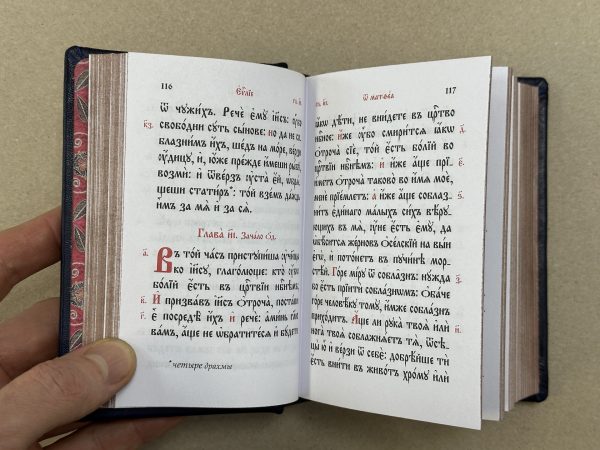 116
Еѵⷢ҇лїе
ѿ чꙋжи́хъ. Речѐ є҆мꙋ̀ і҆и҃съ: ᲂу҆̀бо
свобо́дни сꙋ́ть сы́нове: но да не со-
блазни́мъ и҆́хъ, ше́дъ на мо́ре, ве́рзи
ᲂу҆́дицꙋ, и҆, ю҆́же пре́жде и҆́меши ры́бꙋ,
возмѝ: и҆ ѿве́рзъ ᲂу҆ста̀ є҆́й, ѡ҆брѧ́-
щеши стати́ръ*: то́й взе́мъ да́ждь
и҆̀мъ за мѧ̀ и҆ за сѧ̀.
к҃з.
Глава̀ и҃і. Зача́ло ѻ҃д.
а҃. Въ то́й ча́съ пристꙋпи́ша ᲂу҆чн҃цы̀
ко і҆и҃сꙋ, глаго́люще: кто̀ ᲂу҆́бо
бо́лїй є҆́сть въ црⷭ҇твїи нбⷭ҇нѣмъ;
в҃. И҆ призва́въ і҆и҃съ ѻ҆троча̀, поста́ви
г҃. є҆̀ посредѣ̀ и҆́хъ и҆ речѐ: а҆ми́нь гл҃ю
ва́мъ, а҆́ще не ѡ҆братите́сѧ и҆ бꙋ́дете
* четыре драхмы
ѿ матѳе́а
117
ꙗ҆́кѡ дѣ́ти, не вни́дете въ црⷭ҇тво
нбⷭ҇ное: и҆́же ᲂу҆́бо смири́тсѧ ꙗ҆́кѡ
ѻ҆троча̀ сїѐ, то́й є҆́сть бо́лїй во
црⷭ҇твїи нбⷭ҇нѣмъ: и҆ и҆́же а҆́ще прїи́-
метъ ѻ҆троча̀ таково̀ во и҆́мѧ моѐ,
менѐ прїе́млетъ: а҆ и҆́же а҆́ще собла́з-
ни́тъ є҆ди́наго ма́лыхъ си́хъ вѣ́рꙋ-
ющихъ въ мѧ̀, ᲂу҆́не є҆́сть є҆мꙋ̀, да
ѡ҆бѣ́ситсѧ же́рновъ ѻ҆се́льскїй на вы́и
є҆гѡ̀, и҆ пото́нетъ въ пꙋчи́нѣ мор-
стѣ́й. Го́ре мі́рꙋ ѿ собла̑знъ: нꙋ́жда
бо є҆́сть прїитѝ собла́знѡмъ: ѻ҆ба́че
го́ре человѣ́кꙋ томꙋ̀, и҆́мже собла́знъ
прихо́дитъ. А҆́ще ли рꙋка̀ твоѧ̀ и҆лѝ
нога̀ твоѧ̀ соблажнѧ́етъ тѧ̀, ѿсѣ-
цы̀ ю҆̀ и҆ ве́рзи ѿ себє̀: добрѣ́йше тѝ
є҆́сть вни́ти въ живо́тъ хро́мꙋ и҆лѝ
д҃.
є҃.
ѕ҃.
з҃.
и҃.